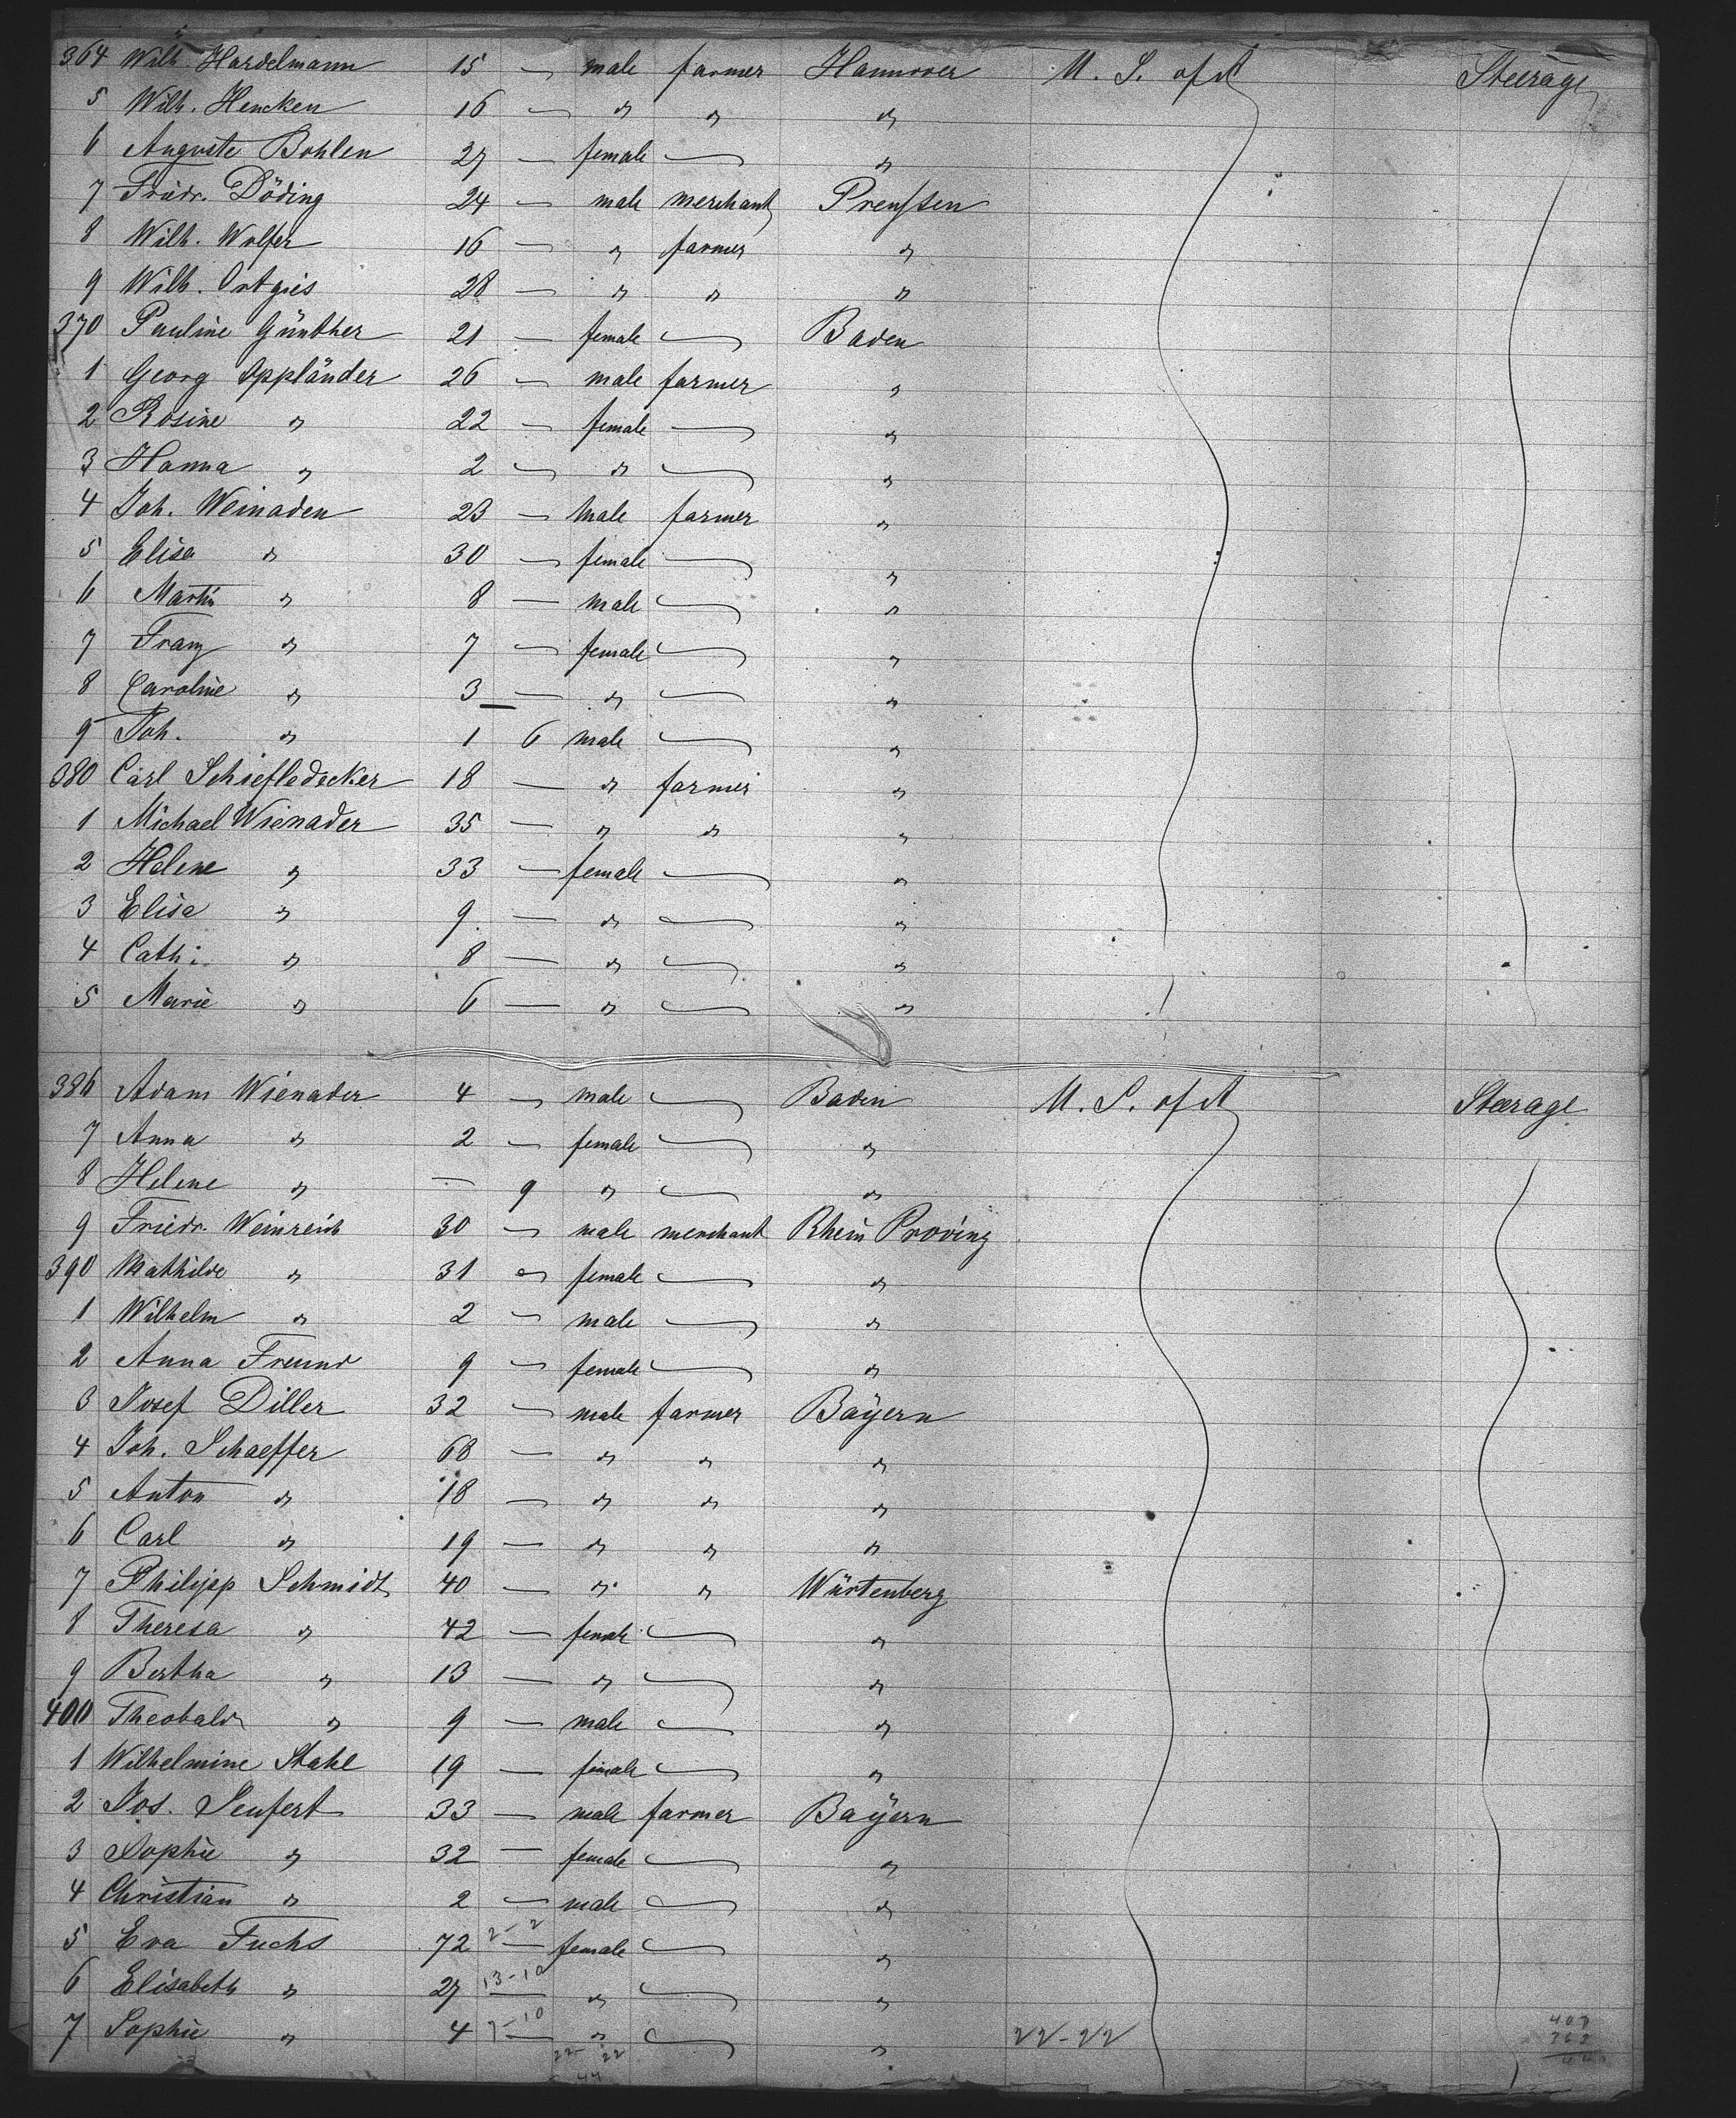 364 Wilh. Hardelmann 15 — male farmer Hannover U. S. of A Steerage
5 Wilh. Hencken 16 — " " "
6 Auguste Bohlen 27 — female — "
7 Friedr. Döding 24 — male merchant Preussen
8 Wilh. Wolfer 16 — " farmer "
9 Wilh. Ortgies 28 — " " "
370 Pauline Günther 21 — female — Baden
1 Georg Oppländer 26 — male farmer "
2 Rosine " 22 — female — "
3 Hanna " 2 — " — "
4 Joh. Weinaden 23 — male farmer "
5 Elisa " 30 — female — "
6 Martin " 8 — male — "
7 Franz " 7 — female — "
8 Caroline " 3 — " — "
9 Joh. " 1 6 male — "
380 Carl Schiefledecker 18 — " farmer "
1 Michael Wienader 35 — " " "
2 Helene " 33 — female — "
3 Elisa " 9 — " — "
4 Cath: " 8 — " — "
5 Marie " 6 — " — "
386 Adam Wienader 4 — male — Baden U. S. of A Steerage
7 Anna " 2 — female — "
8 Helene " — 9 " — "
9 Friedr. Weinreich 30 — male merchant Rhein Provinz
390 Mathilde " 31 — female — "
1 Wilhelm " 2 — male — "
2 Anna Freund 9 — female — "
3 Josef Diller 32 — male farmer Bayern
4 Joh. Schaeffer 68 — " " "
5 Anton " 18 — " " "
6 Carl " 19 — " " "
7 Philipp Schmidt 40 — " " Würtenberg
8 Theresa " 42 — female — "
9 Bertha " 13 — " — "
400 Theobald " 9 — male — "
1 Wilhelmine Stahl 19 — female — "
2 Jos. Seufert 33 — male farmer Bayern
3 Sophie " 32 — female — "
4 Christian " 2 — male — "
5 Eva Fuchs 72 2-2 — female — "
6 Elisabeth " 27 13-10 — " — "
7 Sophie " 4 7-10 — " — " 22-22
22- 22
44